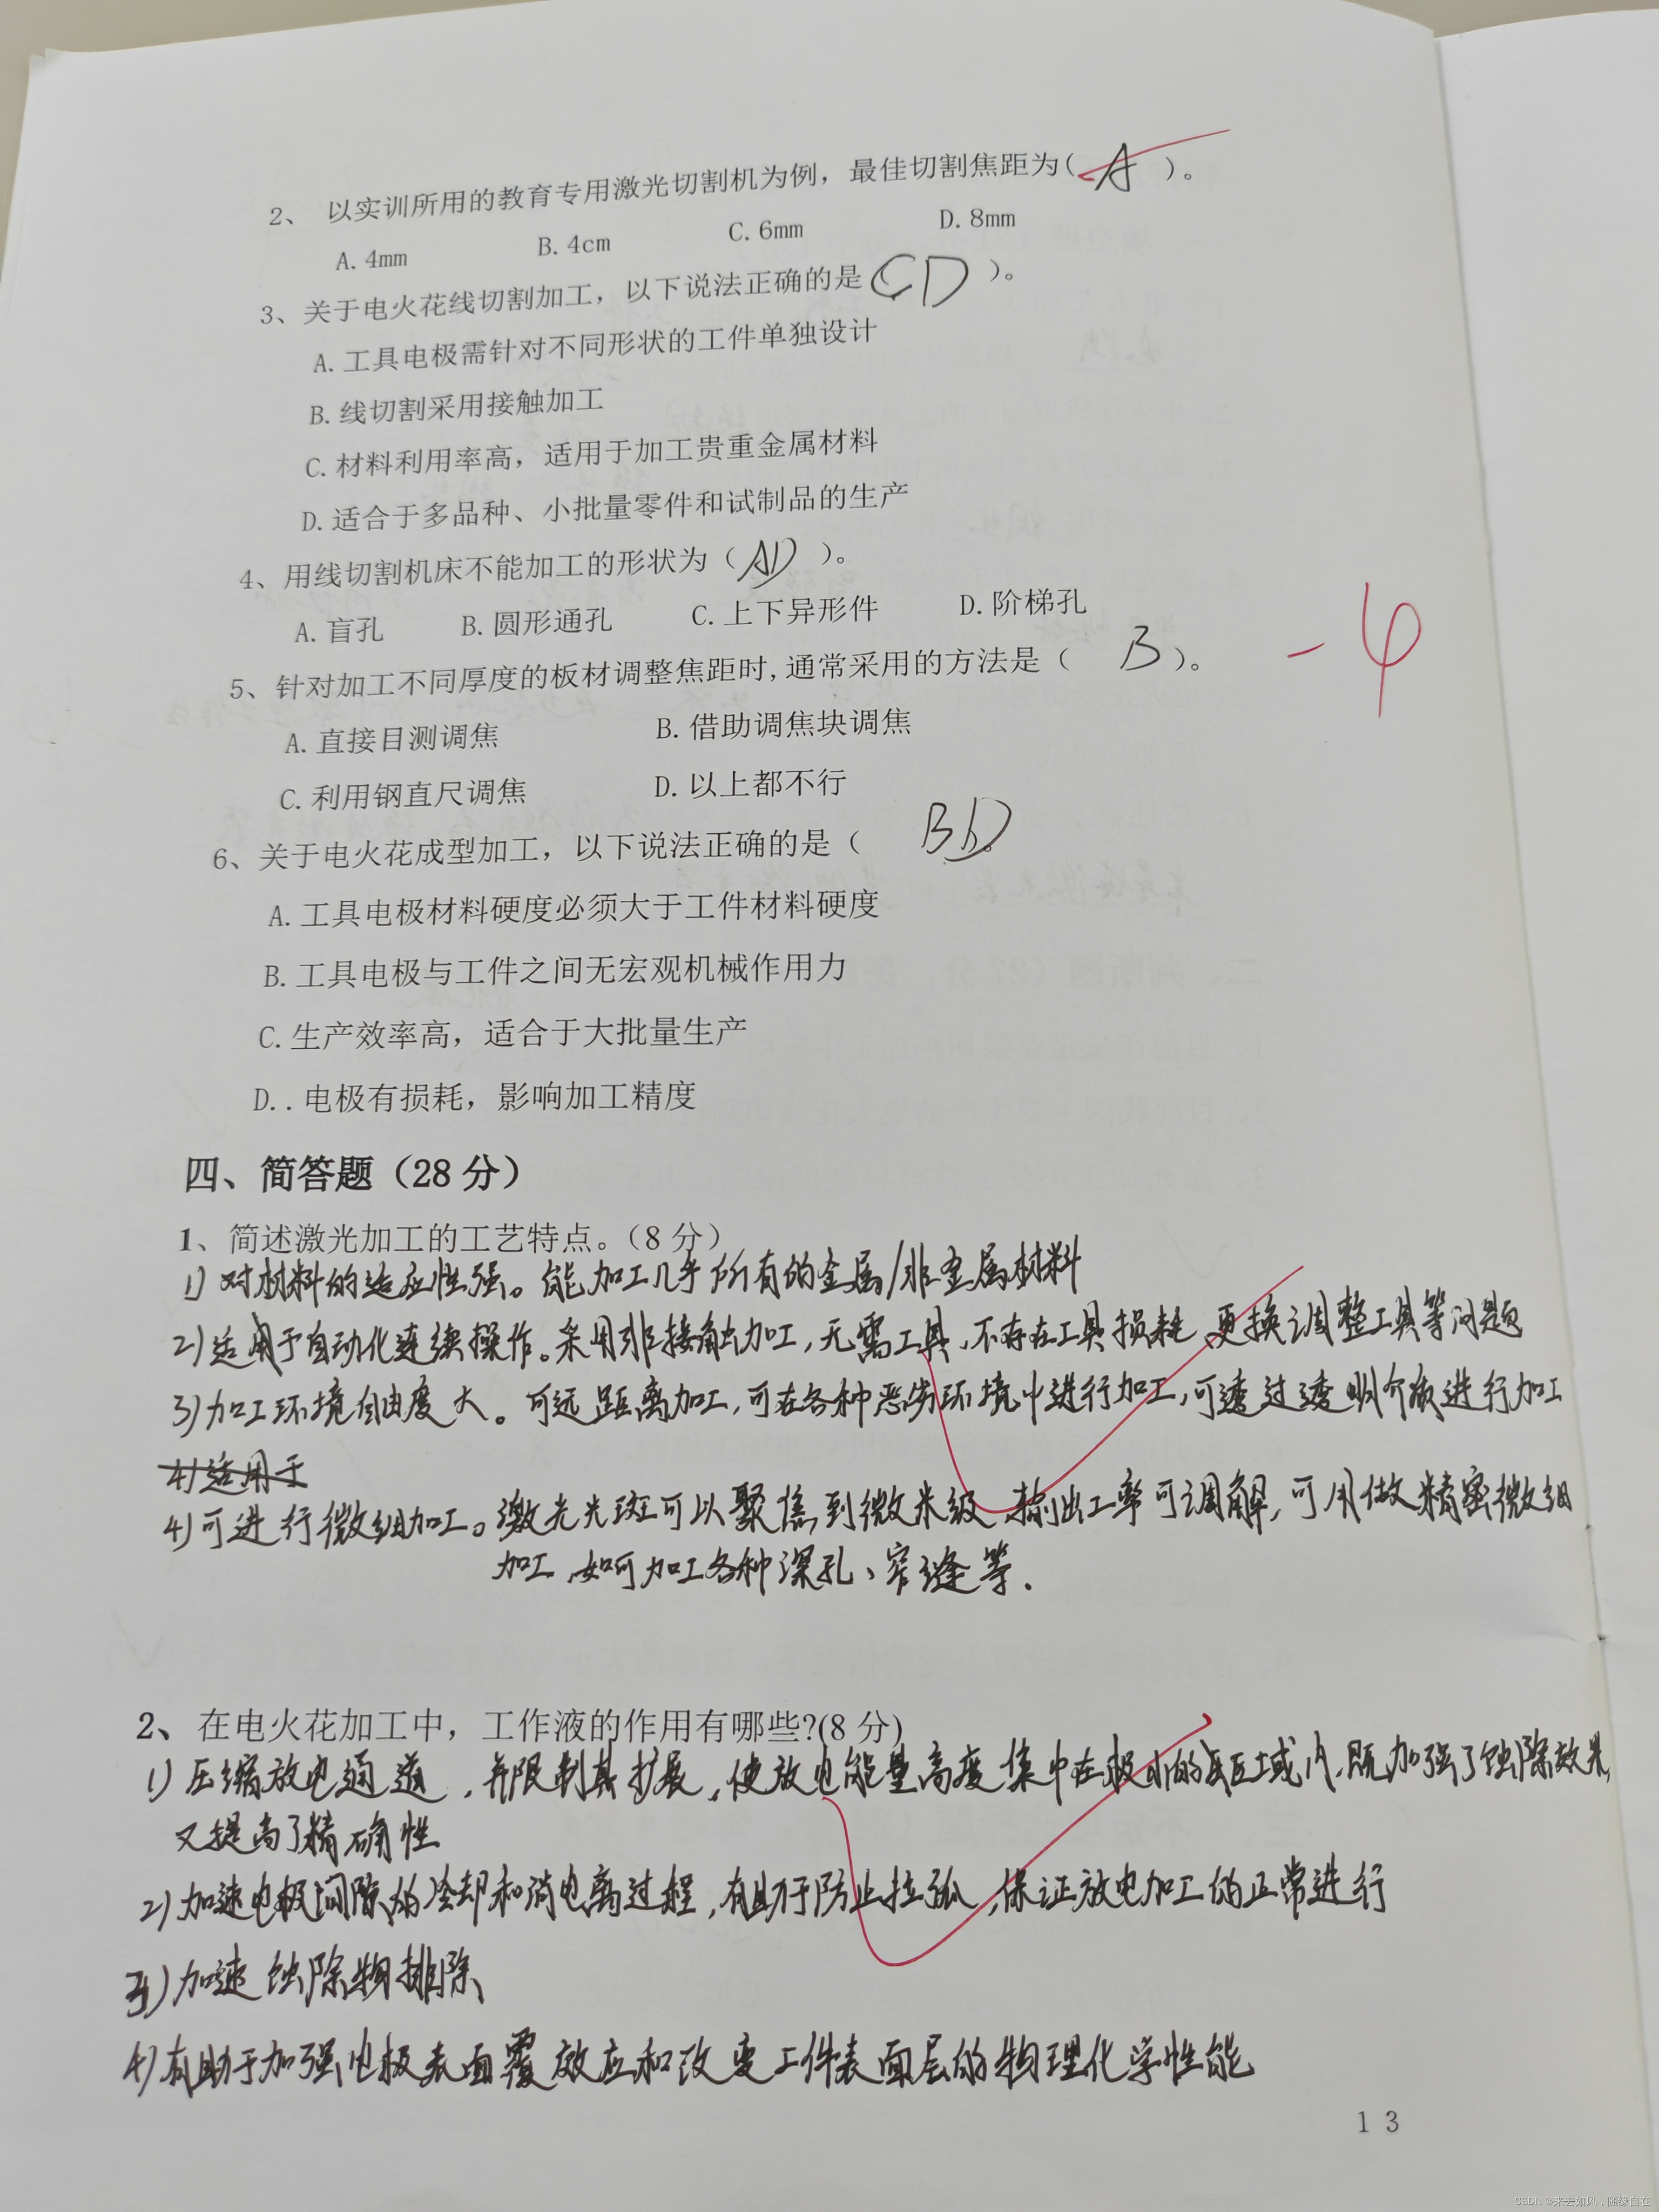 2、 以实训所用的教育专用激光切割机为例，最佳切割焦距为( A )。
A.4mm B.4cm C.6mm D.8mm
3、关于电火花线切割加工，以下说法正确的是(CD )。
A.工具电极需针对不同形状的工件单独设计
B.线切割采用接触加工
C.材料利用率高，适用于加工贵重金属材料
D.适合于多品种、小批量零件和试制品的生产
4、用线切割机床不能加工的形状为（AD ）。
A.盲孔 B.圆形通孔 C.上下异形件 D.阶梯孔
5、针对加工不同厚度的板材调整焦距时,通常采用的方法是（ B ）。
-4
A.直接目测调焦 B.借助调焦块调焦
C.利用钢直尺调焦 D.以上都不行
6、关于电火花成型加工，以下说法正确的是（ BD 。
A.工具电极材料硬度必须大于工件材料硬度
B.工具电极与工件之间无宏观机械作用力
C.生产效率高，适合于大批量生产
D..电极有损耗，影响加工精度
四、简答题（28 分）
1、简述激光加工的工艺特点。（8 分）
1) 对材料的适应性强。能加工几乎所有的金属/非金属材料
2)适用于自动化连续操作。采用非接触加工,无需工具、不存在工具损耗、更换调整工具等问题
3)加工环境自由度大。可远距离加工,可在各种恶劣环境中进行加工,可透过透明介质进行加工
4)适用于
4)可进行微细加工。激光光斑可以聚焦到微米级、输出功率可调解,可用做精密微细
加工、如可加工各种深孔、窄缝等.
2、在电火花加工中，工作液的作用有哪些?(8 分)
1)压缩放电通道,并限制其扩展,使放电能量高度集中在极小的区域内,既加强了蚀除效果,
又提高了精确性
2)加速电极间隙的冷却和消电离过程,有助于防止拉弧,保证放电加工的正常进行
3)加速蚀除物排除
4)有助于加强电极表面覆效应和改变工件表面层的物理化学性能
13
CSDN @来去如风，随缘自在